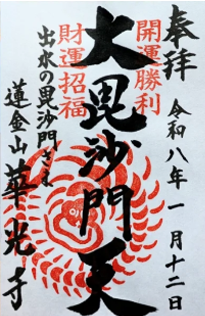 奉拝
令和八年一月十二日
開運勝利
大毘沙門天
財運招福
出水の毘沙門さま
蓮金山華光寺